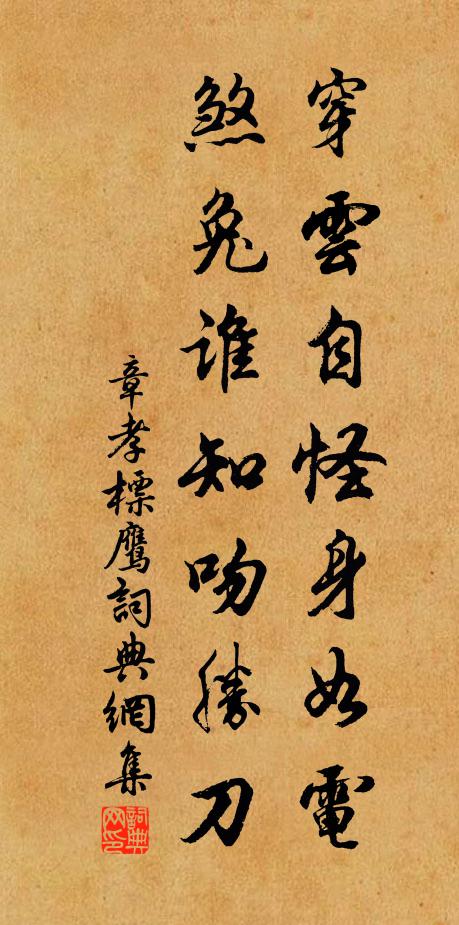 穿雲自怪身如電
煞兔誰知吻勝刀
章孝標鷹詞典網集
詞典网印